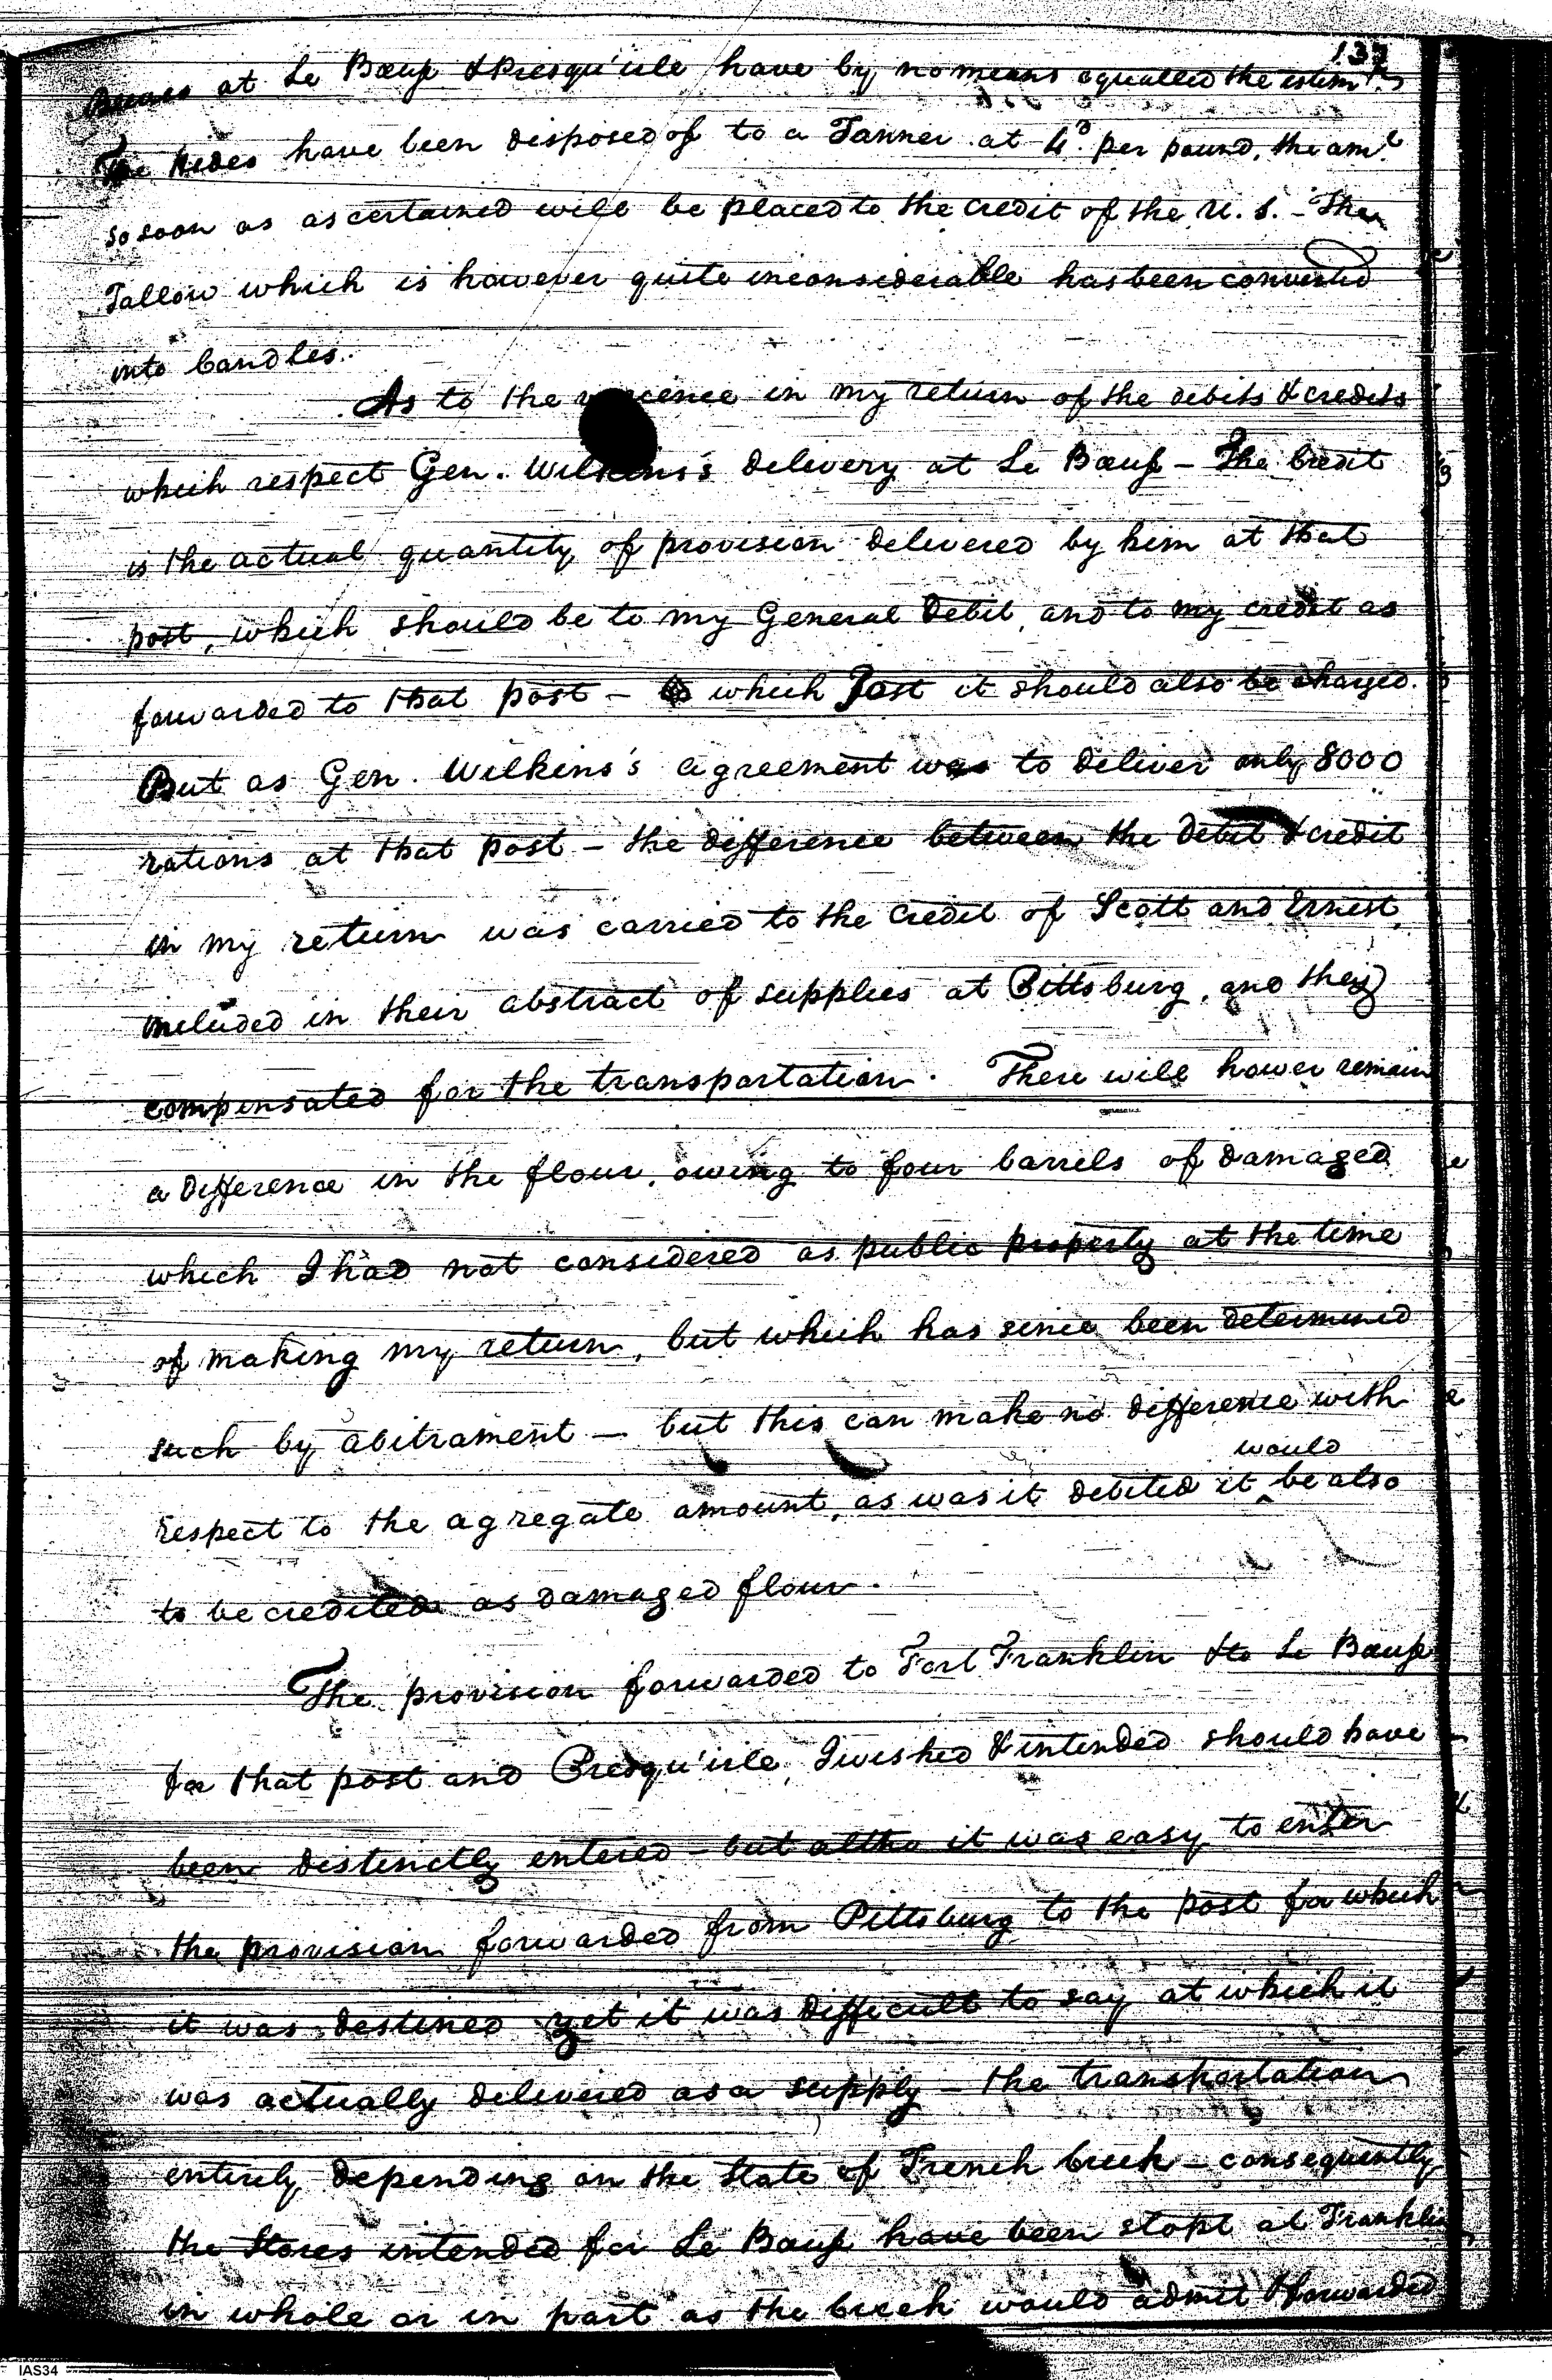 137
Beeves at Le Bœuf & Presqu'isle have by no means equalled the estimⁿ.
The Hides have been disposed of to a Tanner at 4ᵈ. per pound, the amᵗ.
so soon as ascertained will be placed to the credit of the U. S. - The
Tallow which is however quite inconsiderable has been converted
into Candles.
As to the in my return of the debits & credits
which respect Gen. Wilkins's delivery at Le Bœuf - The Credit
is the actual quantity of provision delivered by him at that
post, which should be to my General Debit, and to my credit as
forwarded to that post - to which Post it should also be charged.
But as Gen. Wilkins's agreement was to deliver only 8000
rations at that post - the difference between the debit & credit
in my return was carried to the credit of Scott and Ernist,
included in their abstract of supplies at Pittsburg, and they
compensated for the transportation. There will hower remain
a difference in the flour, owing to four barrels of damaged
which I had not considered as public property at the time
of making my return, but which has since been determined
such by abitrament - but this can make no difference with
would
respect to the agregate amount, as was it debited it ‸ be also
to be credited as damaged flour.
The provision forwarded to Fort Franklin & to Le Bœuf
for that post and Presqu'isle, I wished & intended should have
been distinctly entered - but altho it was easy to enter
the provision forwarded from Pittsburg to the post for which
it was destined yet it was difficult to say at which it
was actually delivered as a supply - the transportation
entirely depending on the state of French Creek - consequently
the Stores intended for Le Bœuf have been stopt at Franklin
in whole or in part as the Creek would admit & forwarded
IAS34